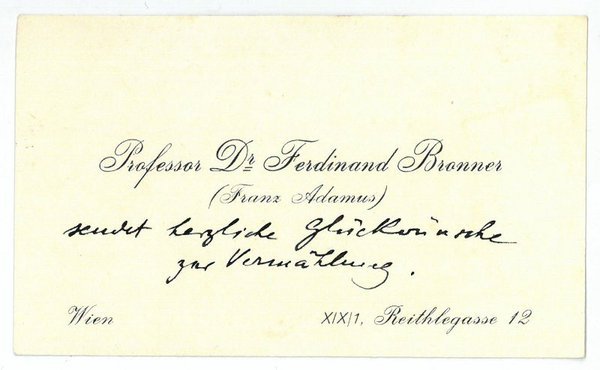 Professor Dr Ferdinand Bronner
(Franz Adamus)
sendet herzliche Glückwünsche
zur Vermählung.
Wien XIX/1, Reithlegasse 12